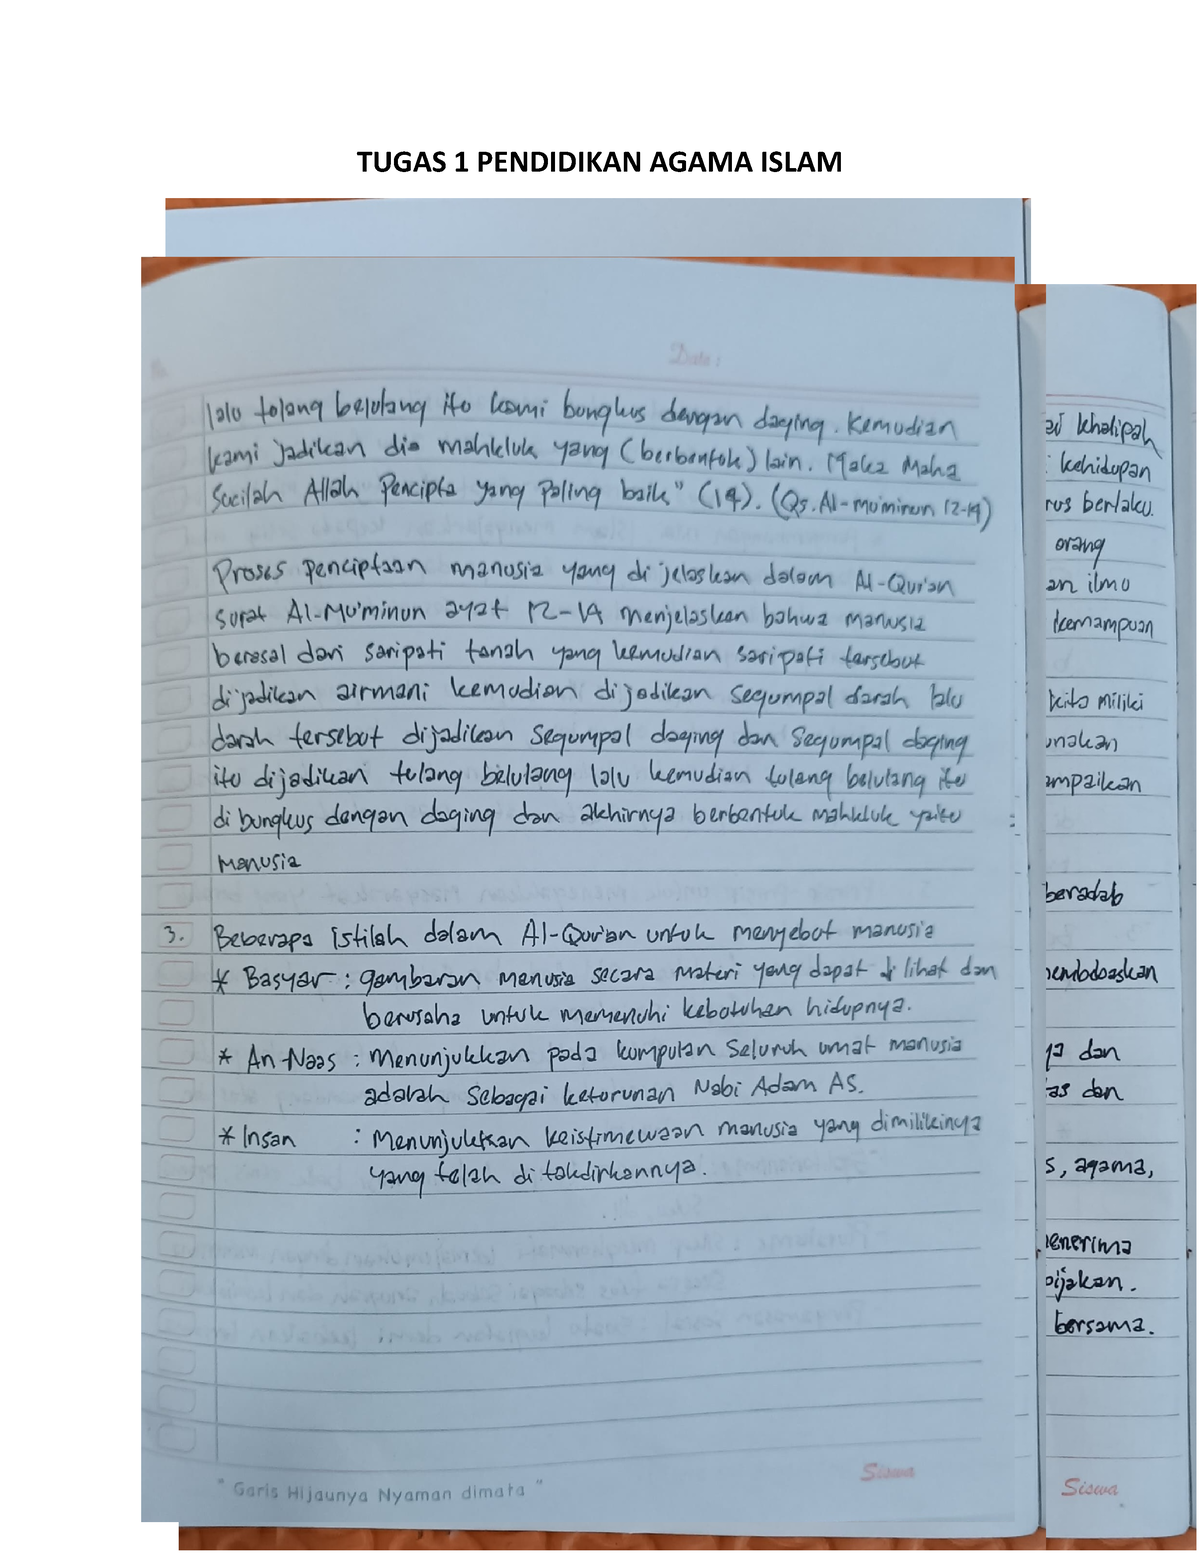 TUGAS 1 PENDIDIKAN AGAMA ISLAM
Date:
lalu tulang belulang itu kami bungkus dengan daging. Kemudian
kami jadikan dia mahkluk yang (berbentuk) lain. Maka Maha
Sucilah Allah Pencipta yang Paling baik" (14). (Qs. Al-mu'minun 12-14)
Proses penciptaan manusia yang di jelaskan dalam Al-Qur'an
surat Al-Mu'minun ayat 12-14 menjelaskan bahwa manusia
berasal dari saripati tanah yang kemudian saripati tersebut
dijadikan airmani kemudian dijadikan segumpal darah lalu
darah tersebut dijadikan segumpal daging dan segumpal daging
itu dijadikan tulang belulang lalu kemudian tulang belulang itu
di bungkus dengan daging dan akhirnya berbentuk mahkluk yaitu
manusia
3. Beberapa istilah dalam Al-Qur'an untuk menyebut manusia
* Basyar : gambaran manusia secara materi yang dapat di lihat dan
berusaha untuk memenuhi kebutuhan hidupnya.
* An-Naas : Menunjukkan pada kumpulan seluruh umat manusia
adalah sebagai keturunan Nabi Adam AS.
* Insan : Menunjukkan keistimewaan manusia yang dimilikinya
yang telah di takdirkannya.
" Garis Hijaunya Nyaman dimata "
Siswa
khalipah
: kehidupan
rus berlaku.
orang
an ilmu
kemampuan
kita miliki
unakan
ampaikan
beradab
membdoaskan
ya dan
tas dan
s, agama,
nenerima
bijakan.
bersama.
Siswa